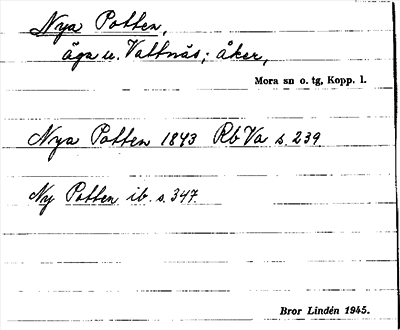 Nya Potten,
äga u. Vattnäs; åker,
Mora sn o. tg, Kopp. l.
Nya Potten 1843 Rb Va s. 239
Ny Potten ib. s. 347.
Bror Lindén 1945.